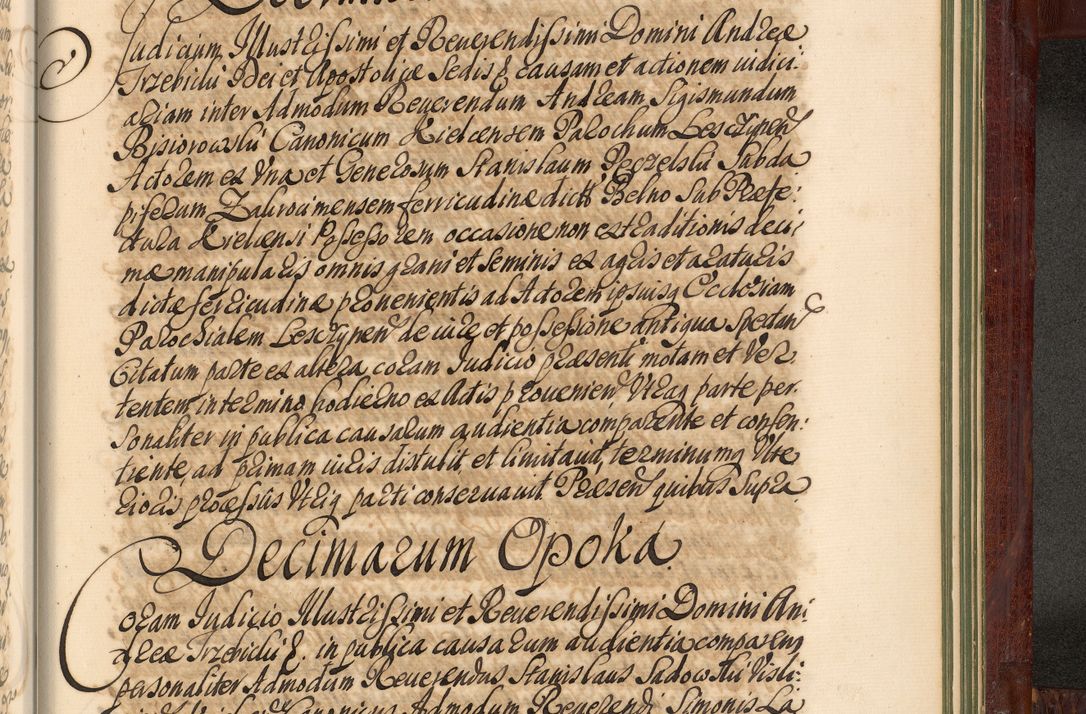 Judicium Illustrissimi et Reuerendissimi Domini Andreæ
Trzebicki Dei et Apostolicæ Sedis & causam et actionem iudici:
ariam inter Admodum Reuerendum Andream Sigismundum
Bisiorowski Canonicum Kielcensem Parochum Lesczynen
Actorem ex Vna et Generosum Stanislaum Sabda
piferum Zakrocimensem ferricudinæ dictæ Belno Sub Præfe:
ctura Kielcensi Possessorem occasione non extraditionis deci:
mæ manipularis omnis grani et seminis ex agris et araturis
dictæ ferricudinæ prouenientis ad Actorem ipsiusq Ecclesiam
Parochialem Lesczynen de iure et possessione antiqua Spectan
Citatum parte ex altera coram Judicio præsenti motam et Ver
tentem in termino hodierno ex Actis prouenien Vtraq parte per
sonaliter in publica causarum audientia comparente et consen:
tiente, ad primam iuris distulit et limitauit, terminumq Vlte
rioris processus Vtriq parti conseruauit Præsen quibus Supra
Decimarum Opoka
Coram Judicio Illustrissimi et Reuerendissimi Domini An:
dreæ Trzebicki &. in publica causarum audientia comparens
personaliter Admodum Reuerendus Stanislaus Sadowski Visli:
Canonicus Admodum Reuerendi Simonis La